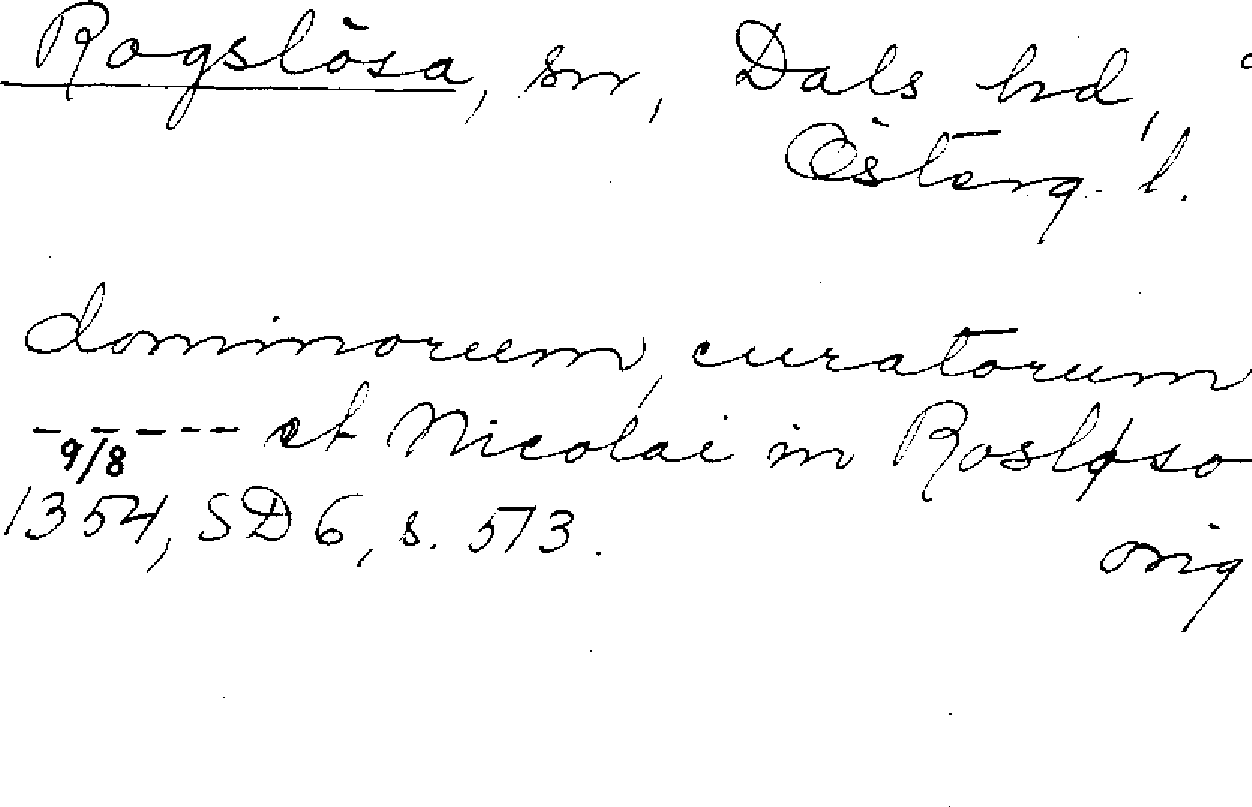 Rogslösa, sn, Dals hd,
Österg. l.
dominorum, curatorum
------ et Nicolai in Rosløso
9/8
1354, SD 6, s. 513.
orig